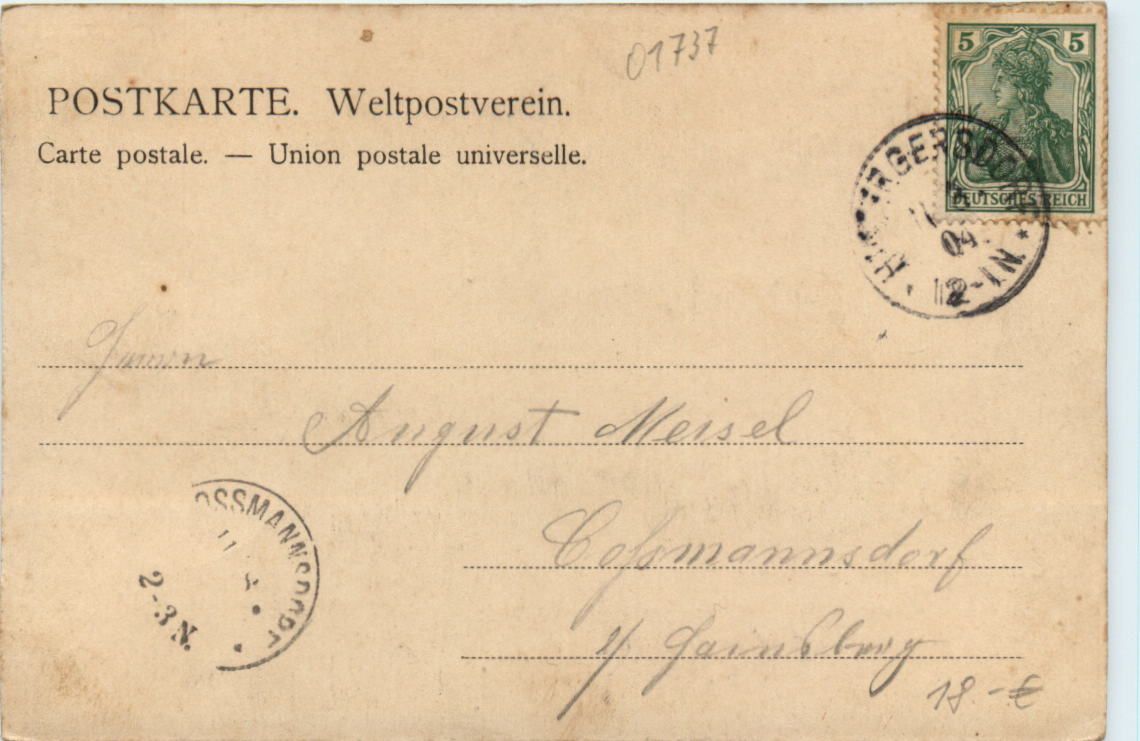 01737
5 5
POSTKARTE. Weltpostverein.
Carte postale. — Union postale universelle.
DEUTSCHES REICH
04
12-1N.
Herrn
August Meisel
Coßmannsdorf
b/ Hainsberg
OSSMANNSDORF
11
2-3N.
18.-€